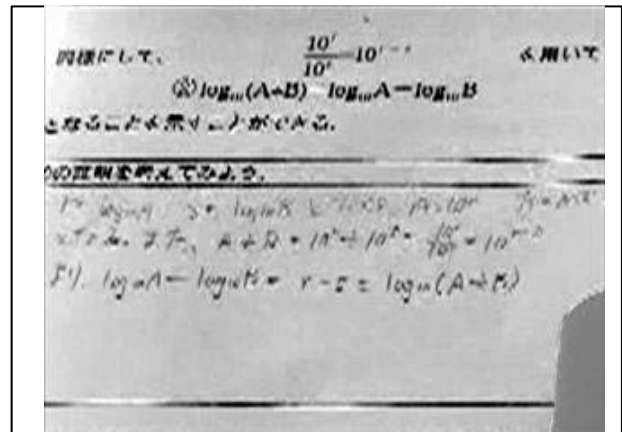 同様にして、 10^r/10^s=10^{r-s} を用いて
② log₁₀(A÷B)=log₁₀A−log₁₀B
となることを示すことができる。
の証明を考えてみよう。
r= log₁₀A s= log₁₀B A=10^r
A÷B = 10^r÷10^s = 10^r/10^s = 10^{r-s}
より、log₁₀A−log₁₀B= r−s = log₁₀(A÷B)